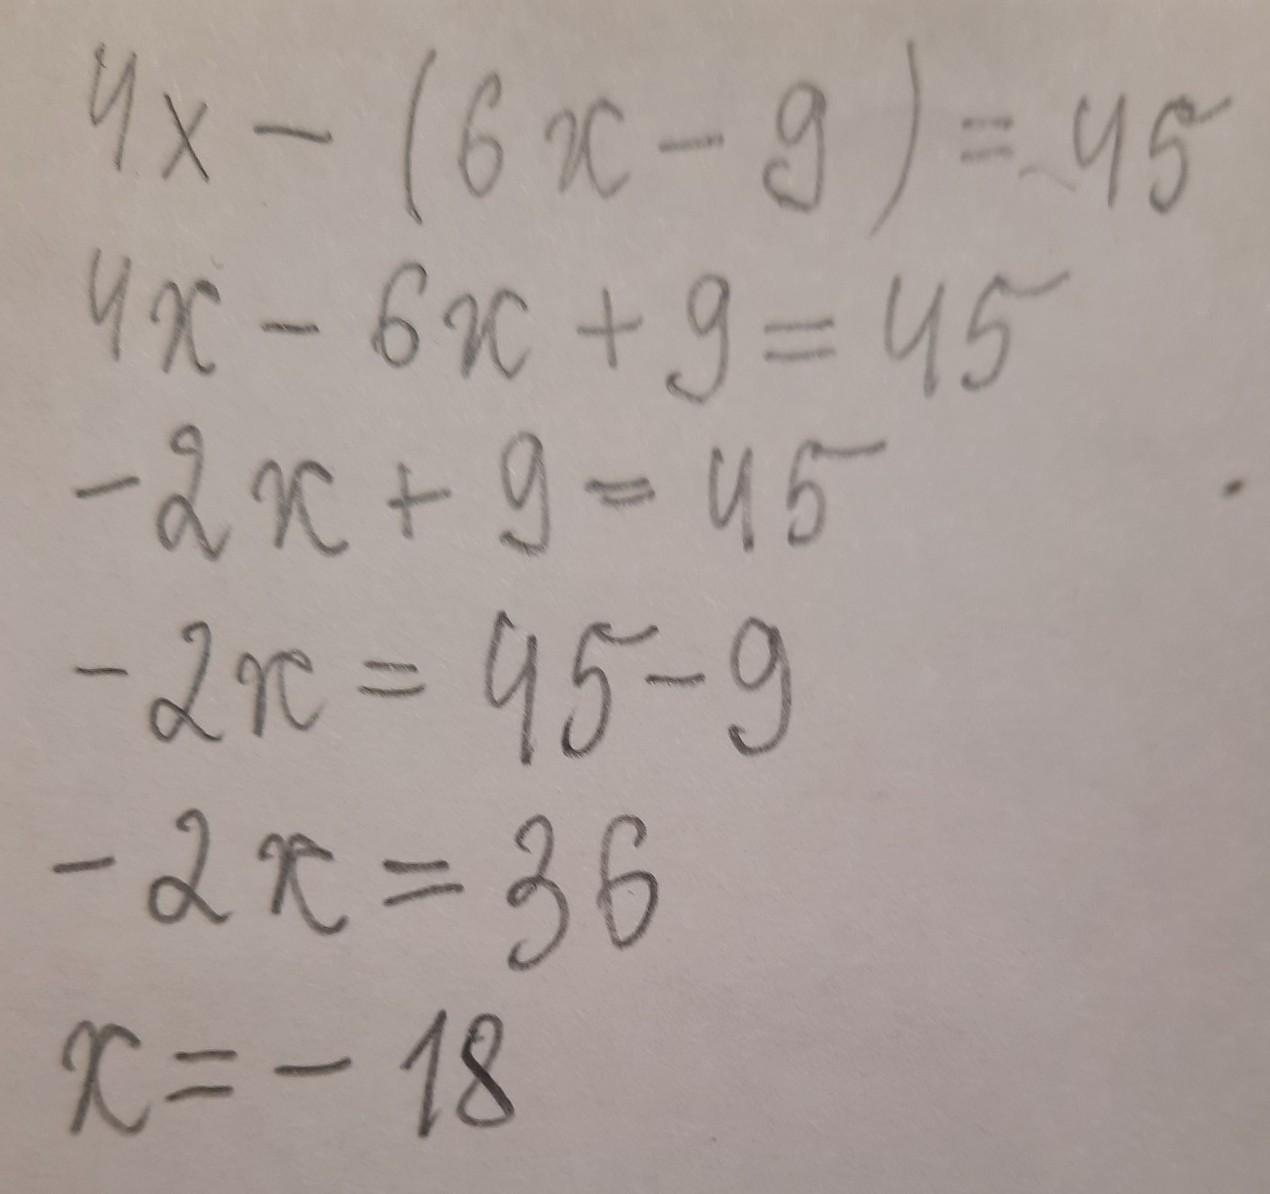 4x - (6x - 9) = 45
4x - 6x + 9 = 45
-2x + 9 = 45
-2x = 45 - 9
-2x = 36
x = - 18